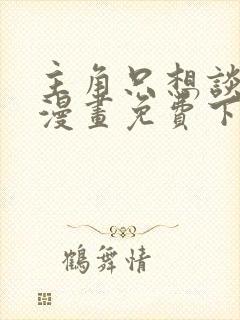 主角只想談
漫畫免費下
鶴舞情